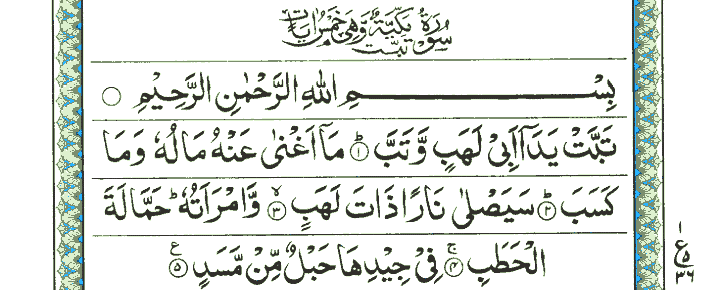 سُوْرَةُ تَبَّتْ مَكِّيَّةٌ وَّهِيَ خَمْسُ اٰيَاتٍ
بِسْمِ اللهِ الرَّحْمٰنِ الرَّحِيْمِ ○
تَبَّتْ يَدَآ اَبِيْ لَهَبٍ وَّتَبَّ ؕ۝۱ مَآ اَغْنٰى عَنْهُ مَالُهٗ وَمَا
كَسَبَ ؕ۝۲ سَيَصْلٰى نَارًا ذَاتَ لَهَبٍ ۙ۝۳ وَّامْرَاَتُهٗ ؕ حَمَّالَةَ
الْحَطَبِ ۚ۝۴ فِيْ جِيْدِهَا حَبْلٌ مِّنْ مَّسَدٍ ۝۵ ع
۱
ع
۵
۳۶